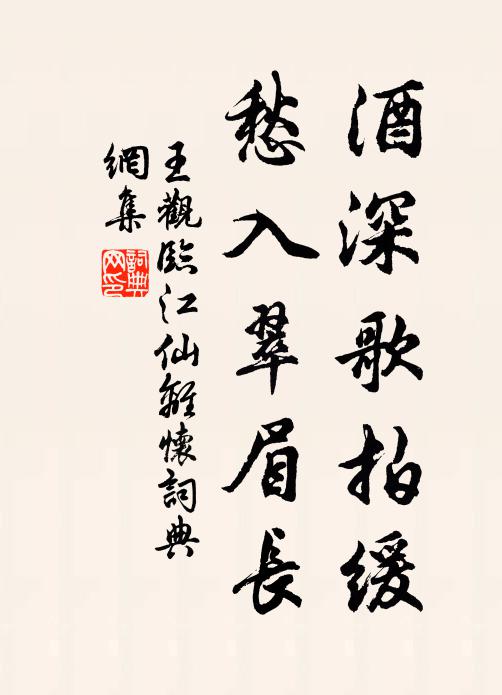 酒深歌拍緩
愁入翠眉長
王觀臨江仙離懷詞典
網集
詞典
网印